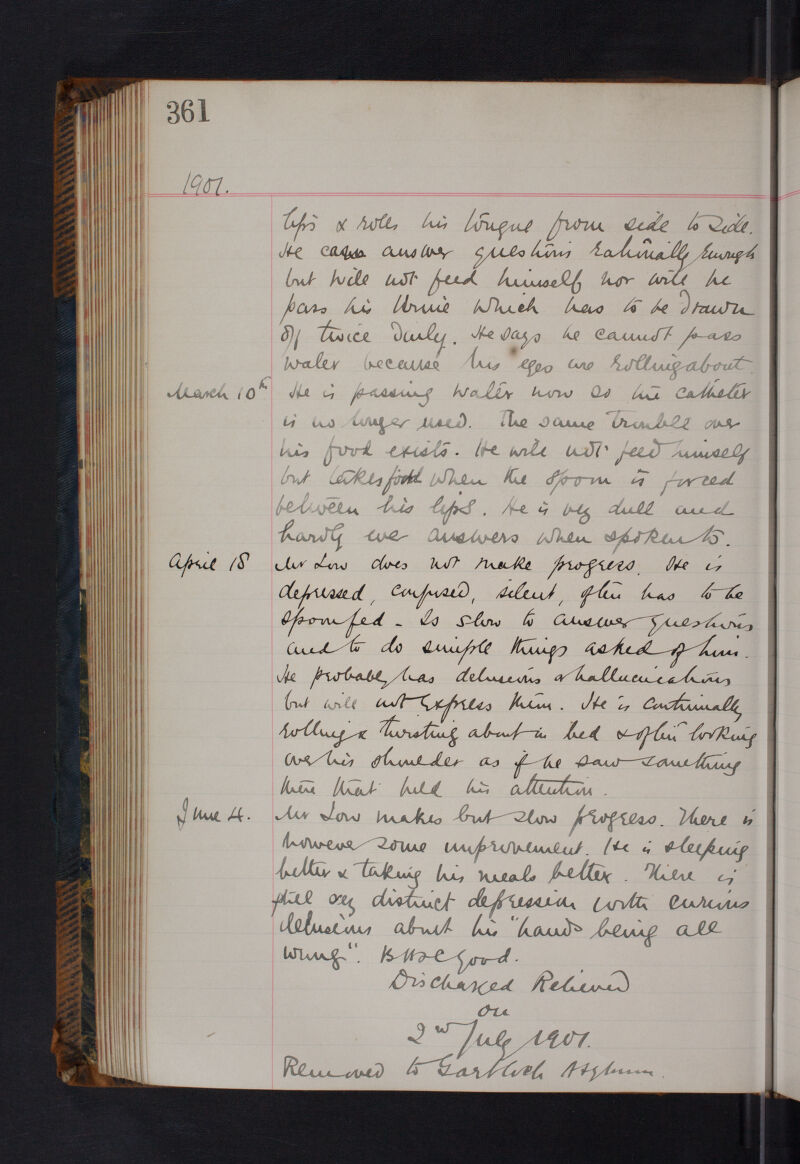 361
1901.
lips & rolls his tongue from side to side.
He can answer questions rationally enough
but will not feed himself nor will he
pass his Urine which has to be drawn
off twice daily. He says he cannot pass
water because his eyes are rolling about.
March 10th He is passing water now so the catheter
is no longer used. The same trouble over
his food exists. He will not feed himself
but takes food when the spoon is forced
between his lips. He is very dull and
hardly ever answers when spoken to.
April 18 Mr Low does not make progress. He is
depressed, confused, silent, often has to be
spoon fed - Is slow to answer questions
and to do simple things asked of him.
He probably has delusions or hallucinations
but will not express them. He is continually
rolling & twisting about in bed & often looking
over his shoulder as if he saw something
there that held his attention.
June 4. Mr Low makes but slow progress. There is
however some improvement. He is sleeping
better & taking his meals better. There is
still very distinct depression with curious
delusions about his "hands being all
wrong". B H &c good.
Discharged Relieved
on
2nd July 1901.
Removed to Gartloch Asylum.